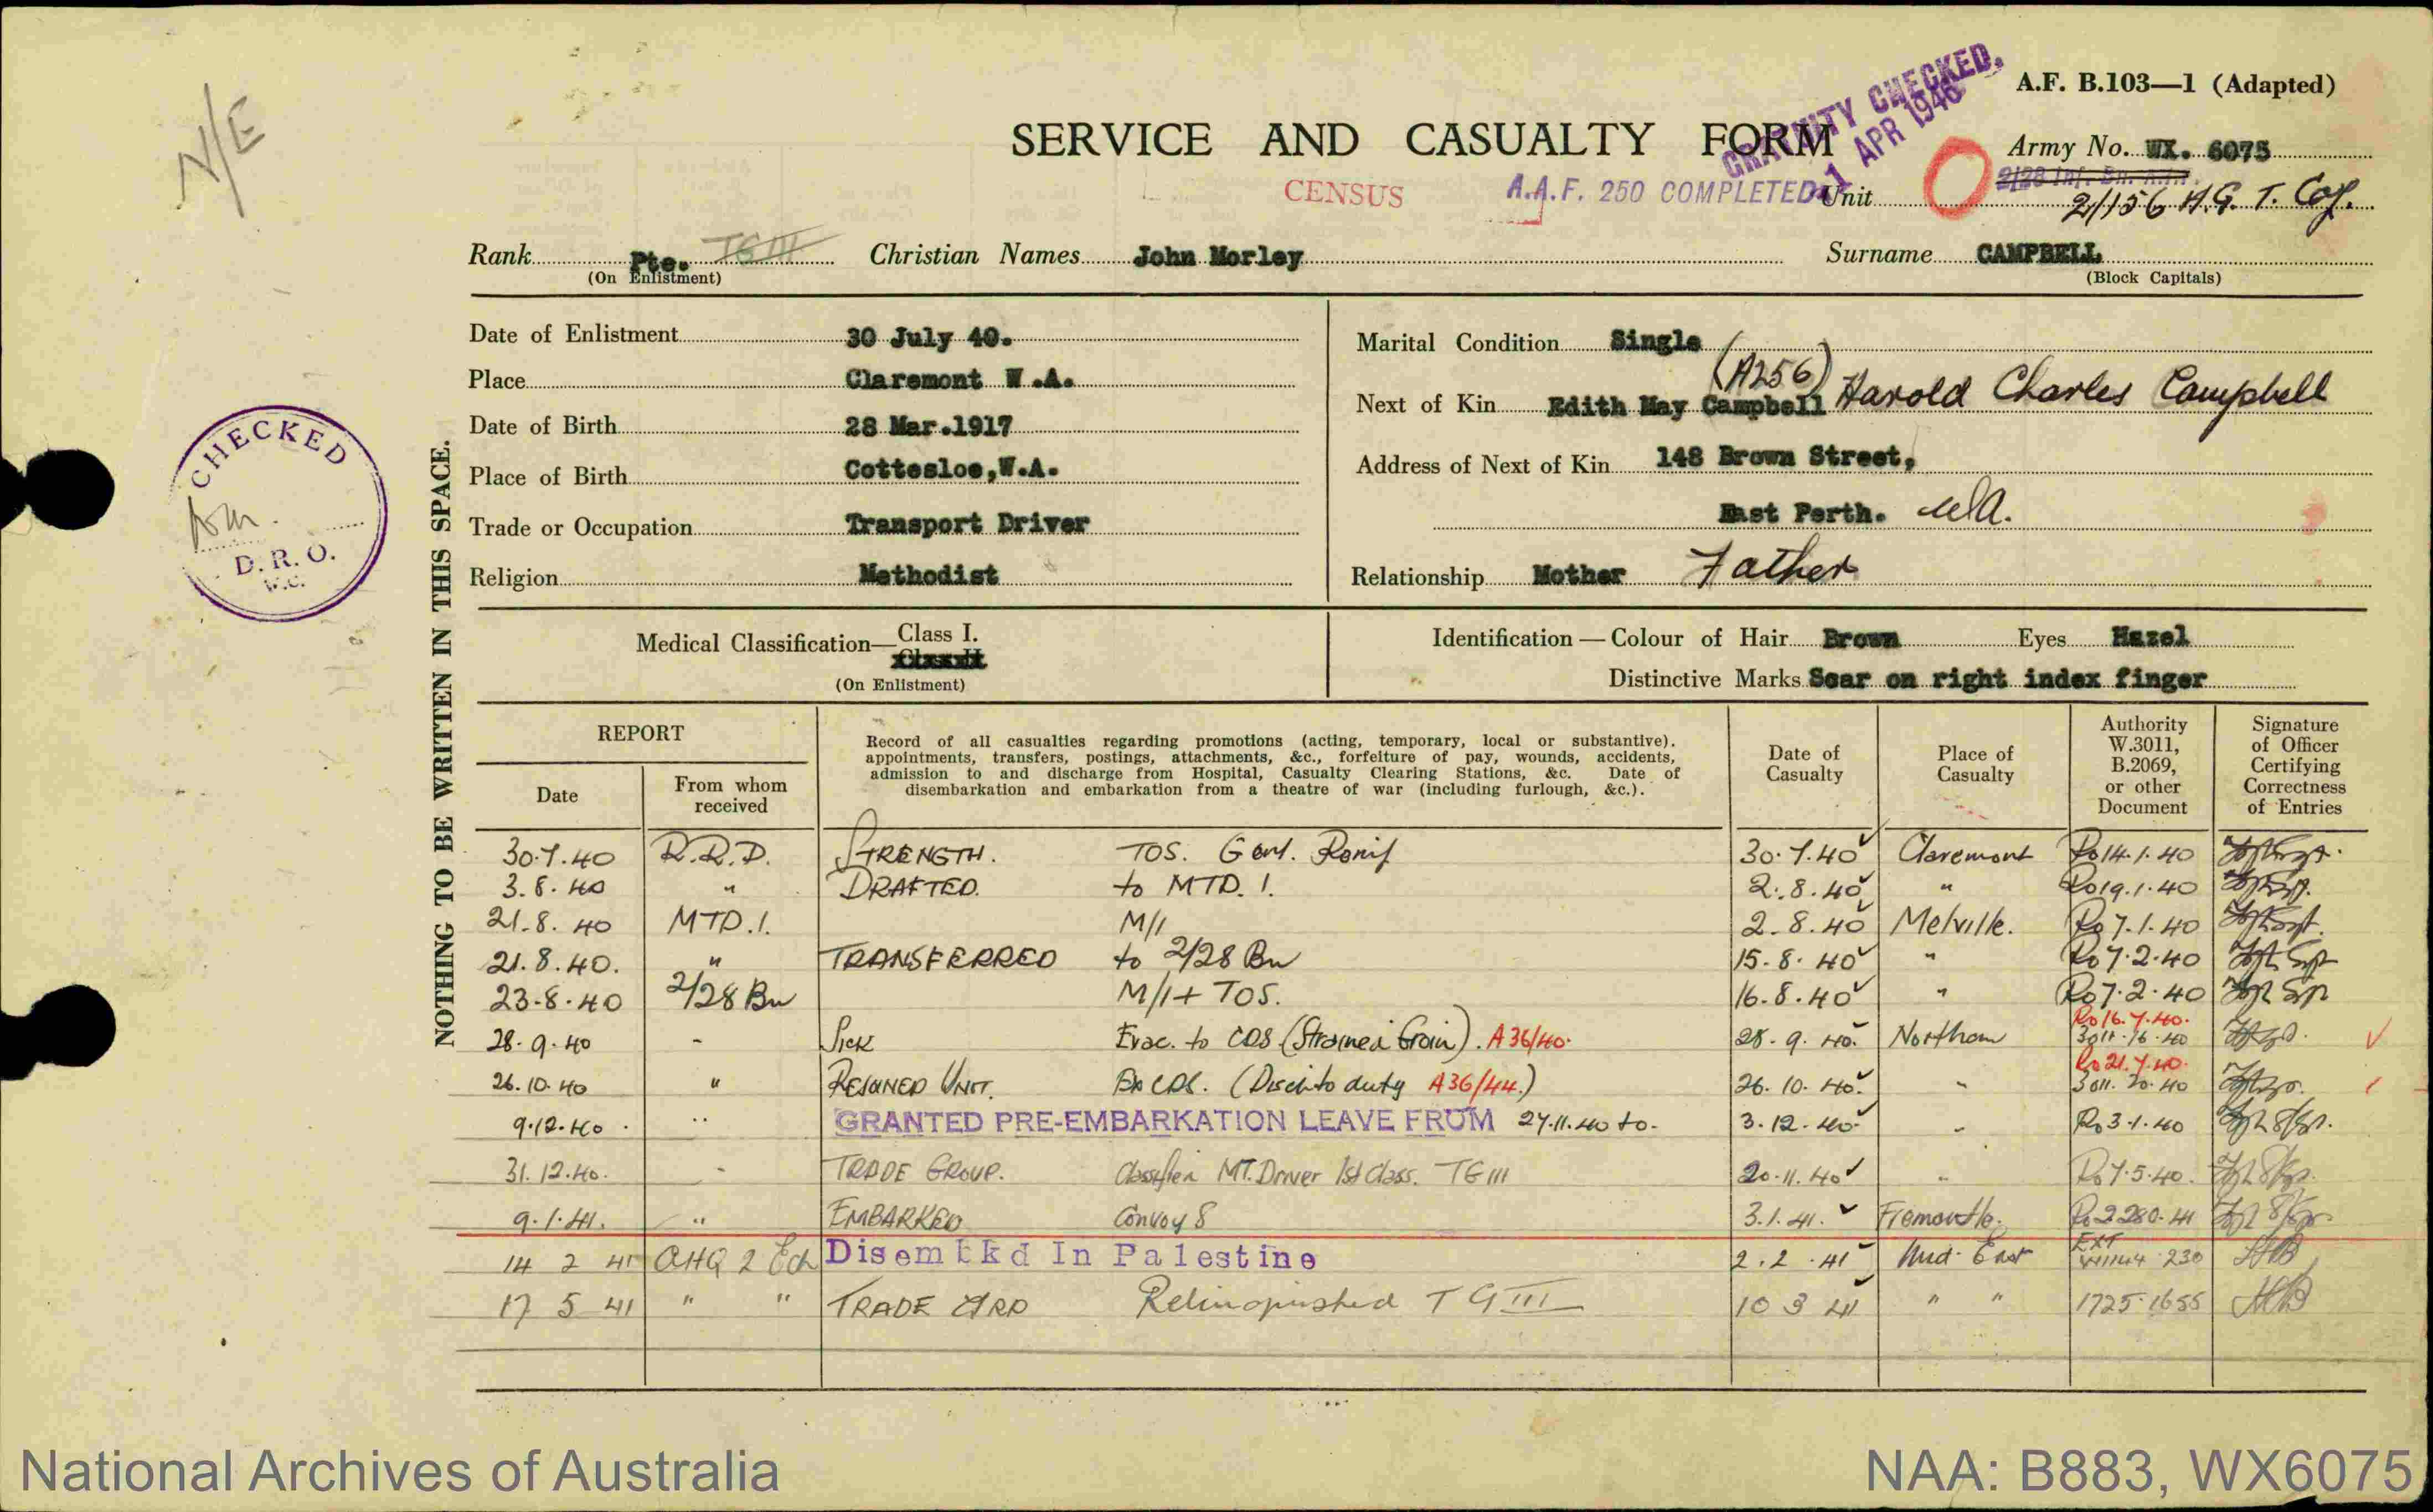 N/E
GRATUITY CHECKED.
1 APR 1946
A.F. B.103—1 (Adapted)
SERVICE AND CASUALTY FORM
Army No. WX. 6075
CENSUS
A.A.F. 250 COMPLETED
Unit 2/28 Inf. Bn. A.I.F.
2/156 A.G.T. Coy.
Rank Pte. TG III Christian Names John Morley Surname CAMPBELL
(On Enlistment) (Block Capitals)
Date of Enlistment 30 July 40.
Place Claremont W.A.
Date of Birth 28 Mar.1917
Place of Birth Cottesloe,W.A.
Trade or Occupation Transport Driver
Religion Methodist
Marital Condition Single
(A256)
Next of Kin Edith May Campbell Harold Charles Campbell
Address of Next of Kin 148 Brown Street,
East Perth. W.A.
Relationship Mother Father
CHECKED
D.R.O.
W.C.
NOTHING TO BE WRITTEN IN THIS SPACE.
Medical Classification— Class I.
Class II
(On Enlistment)
Identification — Colour of Hair Brown Eyes Hazel
Distinctive Marks Scar on right index finger
REPORT
Date
From whom received
Record of all casualties regarding promotions (acting, temporary, local or substantive).
appointments, transfers, postings, attachments, &c., forfeiture of pay, wounds, accidents,
admission to and discharge from Hospital, Casualty Clearing Stations, &c. Date of
disembarkation and embarkation from a theatre of war (including furlough, &c.).
Date of Casualty
Place of Casualty
Authority W.3011, B.2069, or other Document
Signature of Officer Certifying Correctness of Entries
30.7.40 R.R.D. STRENGTH. TOS. Genl. Reinf 30.7.40 Claremont Ro14.1.40
3.8.40 " DRAFTED. to MTD.1. 2.8.40 " Ro19.1.40
21.8.40 MTD.1. M/I 2.8.40 Melville. Ro7.1.40
21.8.40. " TRANSFERRED to 2/28 Bn 15.8.40 " Ro7.2.40
23.8.40 2/28 Bn M/I + TOS. 16.8.40 " Ro7.2.40
Ro16.7.40.
28.9.40 " SICK Evac. to CDS (Strained Groin). A36/40. 28.9.40. Northam 3011.16.40
Ro21.7.40.
26.10.40 " REJOINED UNIT. Ex CDS. (Disch to duty A36/44.) 26.10.40. " 3011.20.40
9.12.40 " GRANTED PRE-EMBARKATION LEAVE FROM 27.11.40 to. 3.12.40. " Ro3.1.40
31.12.40. " TRADE GROUP. Classified MT. Driver 1st Class. TG III 20.11.40 " Ro7.5.40.
9.1.41. " EMBARKED Convoy 8 3.1.41. Fremantle. Ro2280.41
14 2 41 AHQ 2 Ech Disembkd In Palestine 2.2.41 Mid. East EXT 230
17 5 41 " " TRADE GRP Relinquished TG III 10 3 41 " " 1725.1655
National Archives of Australia
NAA: B883, WX6075